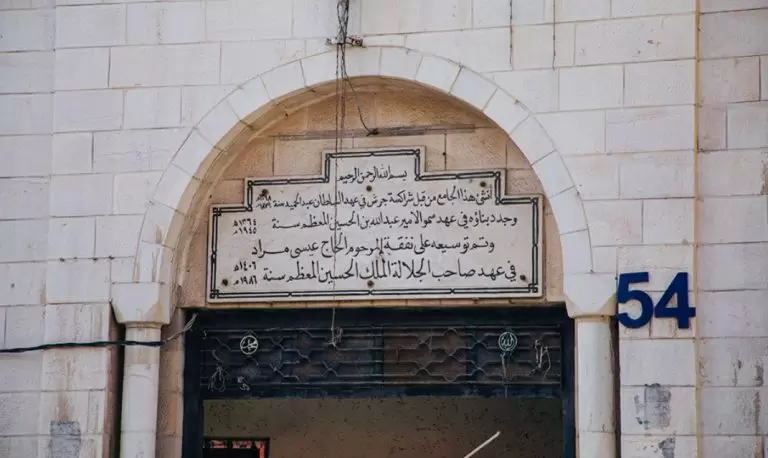 بسم الله الرحمن الرحيم
انشئ هذا الجامع من قبل شراكسة جرش في عهد السلطان عبد الحميد سنة
وجدد بناؤه في عهد سمو الامير عبد الله بن الحسين المعظم سنة ١٣٦٤هـ ١٩٤٥م
وتم توسيعه على نفقة المرحوم الحاج عيسى مراد
في عهد صاحب الجلالة الملك الحسين المعظم سنة ١٤٠٦هـ ١٩٨٦م
54
الله